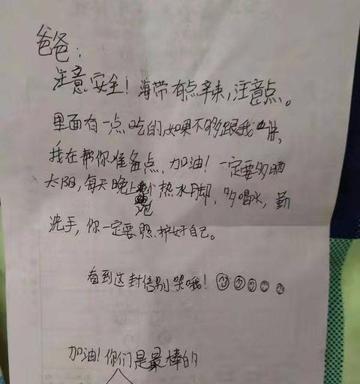 爸爸：
注意安全！海带有点辛辣，注意点。
里面有一点吃的，如果不够跟我讲，
我在帮你准备点，加油！一定要多晒
太阳，每天晚上泡热水脚，多喝水，勤
洗手，你一定要照护好自己。
看到这封信别哭哦！
加油！你们是最棒的